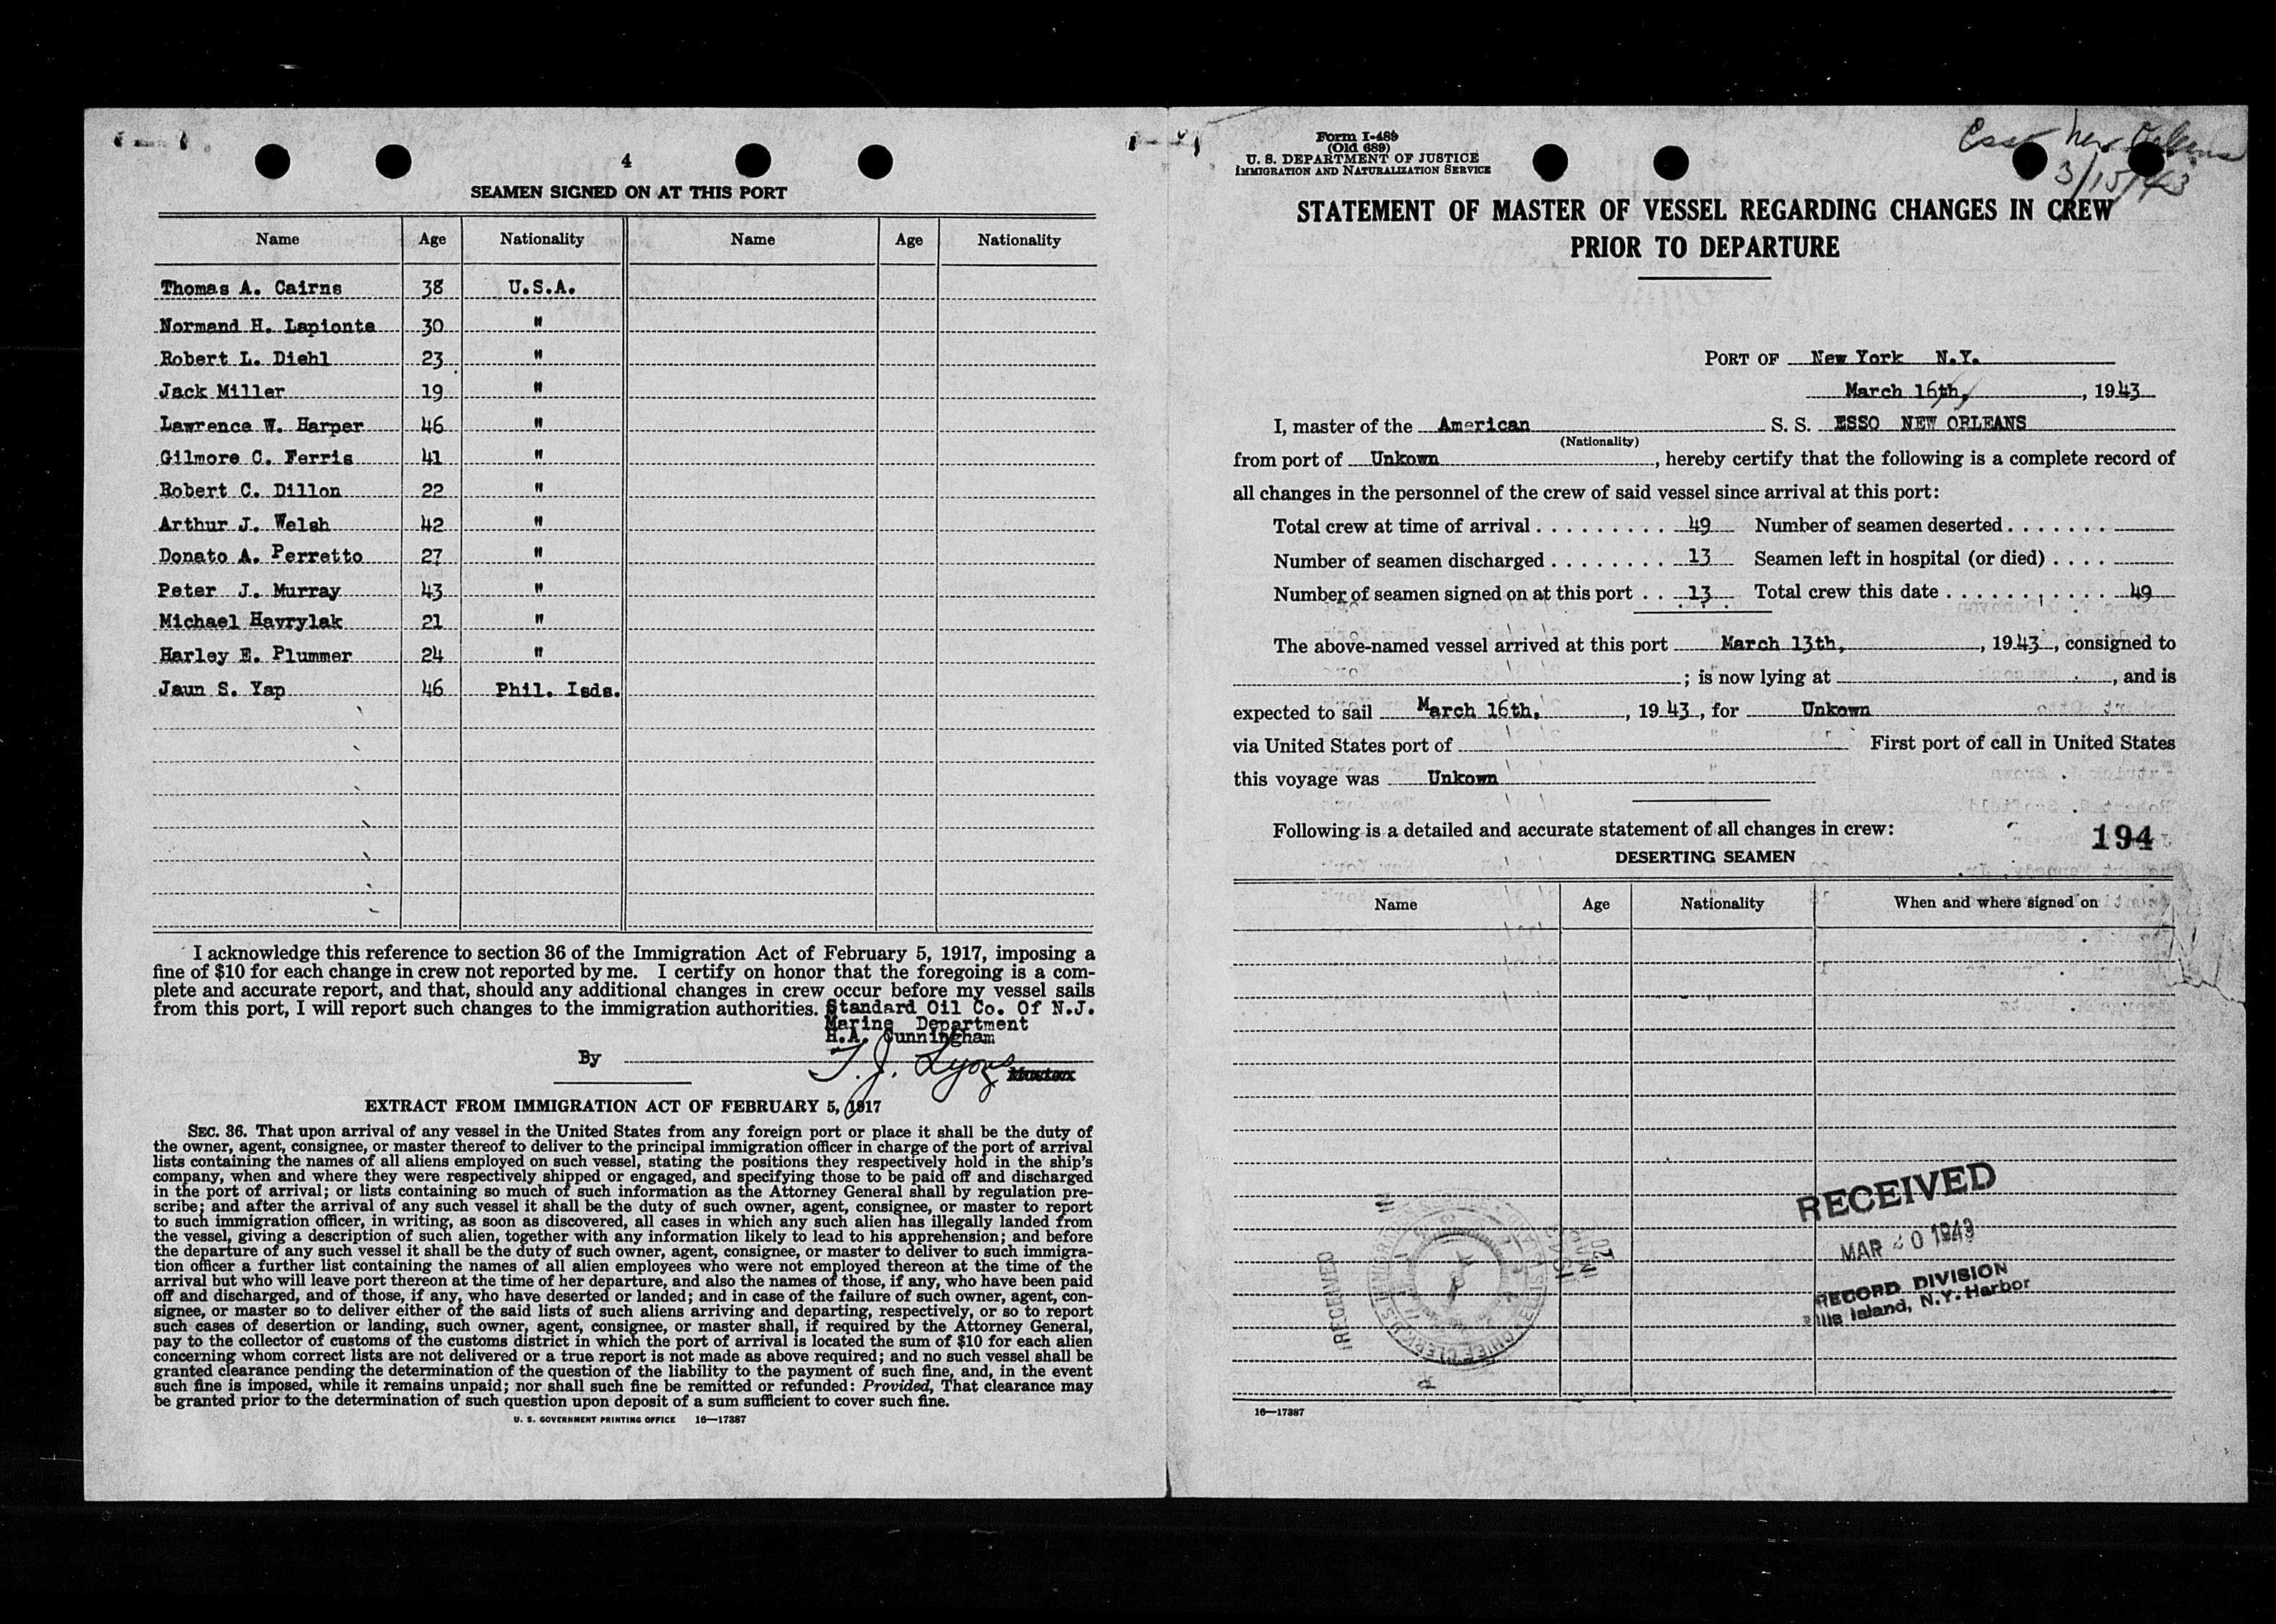 4
SEAMEN SIGNED ON AT THIS PORT
Name Age Nationality Name Age Nationality
Thomas A. Cairns 38 U.S.A.
Normand H. Lapionte 30 "
Robert L. Diehl 23 "
Jack Miller 19 "
Lawrence W. Harper 46 "
Gilmore C. Ferris 41 "
Robert C. Dillon 22 "
Arthur J. Welsh 42 "
Donato A. Perretto 27 "
Peter J. Murray 43 "
Michael Havrylak 21 "
Harley E. Plummer 24 "
Jaun S. Yap 46 Phil. Isds.
I acknowledge this reference to section 36 of the Immigration Act of February 5, 1917, imposing a
fine of $10 for each change in crew not reported by me. I certify on honor that the foregoing is a com-
plete and accurate report, and that, should any additional changes in crew occur before my vessel sails
from this port, I will report such changes to the immigration authorities. Standard Oil Co. Of N.J.
Marine Department
H.A. Cunningham
By T. J. Lyons
Master
EXTRACT FROM IMMIGRATION ACT OF FEBRUARY 5, 1917
SEC. 36. That upon arrival of any vessel in the United States from any foreign port or place it shall be the duty of
the owner, agent, consignee, or master thereof to deliver to the principal immigration officer in charge of the port of arrival
lists containing the names of all aliens employed on such vessel, stating the positions they respectively hold in the ship's
company, when and where they were respectively shipped or engaged, and specifying those to be paid off and discharged
in the port of arrival; or lists containing so much of such information as the Attorney General shall by regulation pre-
scribe; and after the arrival of any such vessel it shall be the duty of such owner, agent, consignee, or master to report
to such immigration officer, in writing, as soon as discovered, all cases in which any such alien has illegally landed from
the vessel, giving a description of such alien, together with any information likely to lead to his apprehension; and before
the departure of any such vessel it shall be the duty of such owner, agent, consignee, or master to deliver to such immigra-
tion officer a further list containing the names of all alien employees who were not employed thereon at the time of the
arrival but who will leave port thereon at the time of her departure, and also the names of those, if any, who have been paid
off and discharged, and of those, if any, who have deserted or landed; and in case of the failure of such owner, agent, con-
signee, or master so to deliver either of the said lists of such aliens arriving and departing, respectively, or so to report
such cases of desertion or landing, such owner, agent, consignee, or master shall, if required by the Attorney General,
pay to the collector of customs of the customs district in which the port of arrival is located the sum of $10 for each alien
concerning whom correct lists are not delivered or a true report is not made as above required; and no such vessel shall be
granted clearance pending the determination of the question of the liability to the payment of such fine, and, in the event
such fine is imposed, while it remains unpaid; nor shall such fine be remitted or refunded: Provided, That clearance may
be granted prior to the determination of such question upon deposit of a sum sufficient to cover such fine.
U. S. GOVERNMENT PRINTING OFFICE 16—17387
Form I-489
(Old 689)
U. S. DEPARTMENT OF JUSTICE
IMMIGRATION AND NATURALIZATION SERVICE
Esso New Orleans
3/15/43
STATEMENT OF MASTER OF VESSEL REGARDING CHANGES IN CREW
PRIOR TO DEPARTURE
PORT OF New York N.Y.
March 16th, , 1943
I, master of the American S. S. ESSO NEW ORLEANS
(Nationality)
from port of Unkown , hereby certify that the following is a complete record of
all changes in the personnel of the crew of said vessel since arrival at this port:
Total crew at time of arrival . . . . . . . . . 49 Number of seamen deserted . . . . . . .
Number of seamen discharged . . . . . . . . 13 Seamen left in hospital (or died) . . . .
Number of seamen signed on at this port . . 13 Total crew this date . . . . . . . . . . . 49
The above-named vessel arrived at this port March 13th, , 1943, consigned to
; is now lying at , and is
expected to sail March 16th, , 1943, for Unkown
via United States port of First port of call in United States
this voyage was Unkown
Following is a detailed and accurate statement of all changes in crew:
194
DESERTING SEAMEN
Name Age Nationality When and where signed on
RECEIVED
MAR 20 1943
RECORD DIVISION
Ellis Island, N.Y. Harbor
RECEIVED
16—17387